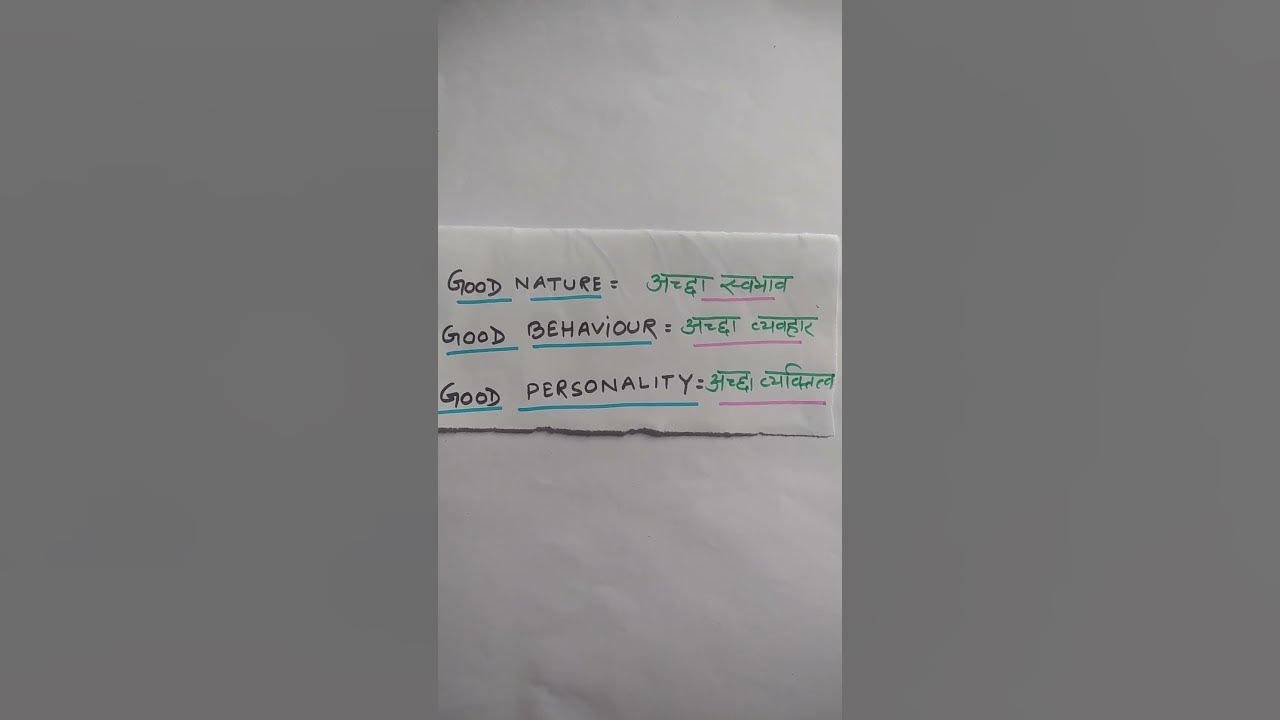 GOOD NATURE = अच्छा स्वभाव
GOOD BEHAViOUR = अच्छा व्यवहार
GOOD PERSONALITY = अच्छा व्यक्तित्व